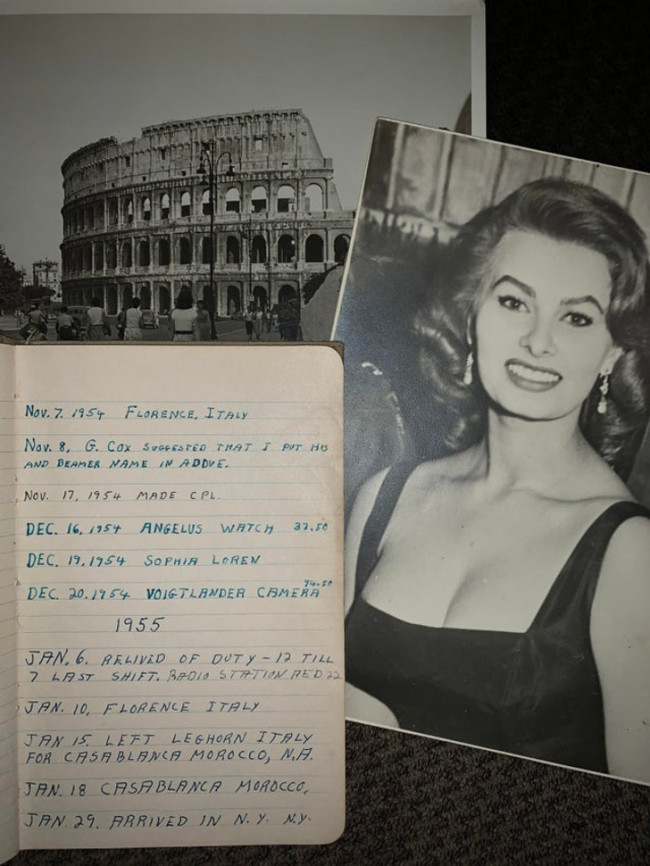 NOV. 7. 1954 FLORENCE, ITALY
NOV. 8, G. COX SUGGESTED THAT I PUT HIS
AND DEAMER NAME IN ADDVE.
NOV. 17, 1954 MADE CPL.
DEC. 16, 1954 ANGELUS WATCH 32.50
DEC. 19, 1954 SOPHIA LOREN
DEC. 20, 1954 VOIGTLANDER CAMERA 74.50
1955
JAN. 6. RELIVED OF DUTY - 12 TILL
7 LAST SHIFT. RADIO STATION AED 22
JAN. 10, FLORENCE ITALY
JAN 15. LEFT LEGHORN ITALY
FOR CASABLANCA MOROCCO, N.A.
JAN. 18 CASABLANCA MOROCCO,
JAN. 29. ARRIVED IN N.Y. N.Y.